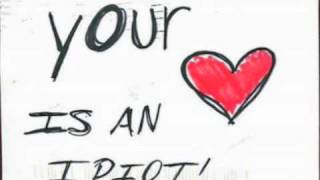 your
IS AN
IDIOT!